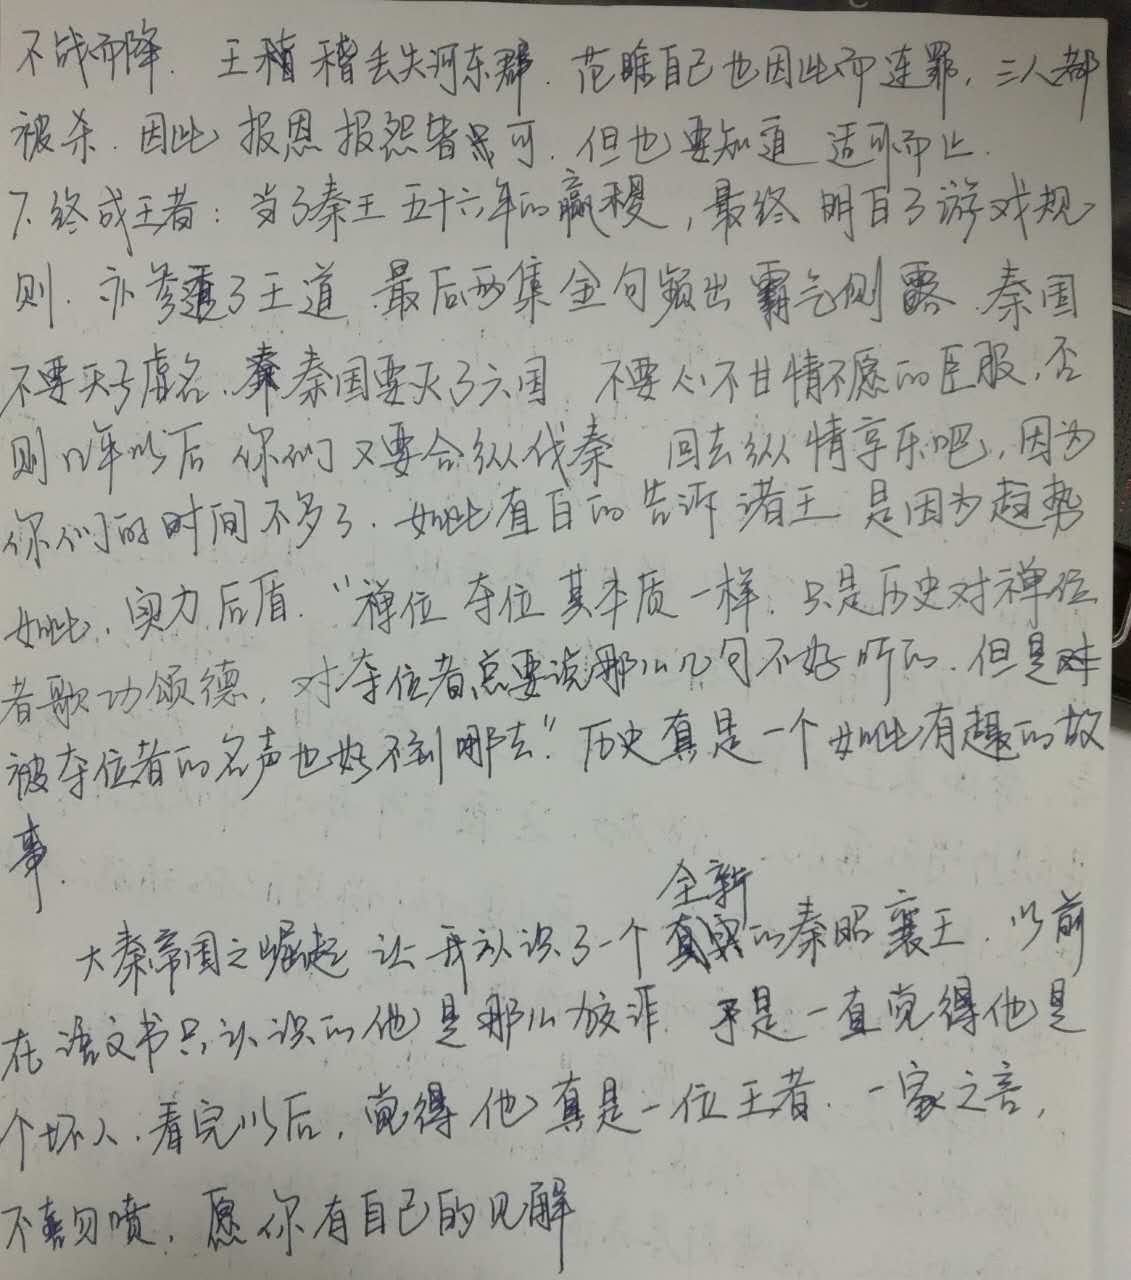 不战而降. 王稽 稽丢失河东郡. 范雎自己也因此而连罪, 三人都
被杀. 因此 报恩 报怨皆可. 但也要知道 适可而止.
7. 终成王者: 当了秦王五十六年的嬴稷, 最终明白了游戏规
则. 亦参透了王道 最后两集金句频出 霸气侧露. 秦国
不要天子虚名. 秦国要灭了六国 不要心不甘情不愿的臣服, 否
则几年以后 你们又要合纵伐秦 回去纵情享乐吧, 因为
你们的时间不多了. 如此直白的告诉诸王 是因为趋势
如此, 实力后盾. “禅位 夺位 其本质一样. 只是历史对禅位
者歌功颂德, 对夺位者总要说那么几句不好听的. 但是对
被夺位者的名声也好不到哪去”. 历史真是一个如此有趣的故
事.
全新
大秦帝国之崛起 让我认识了一个的秦昭襄王. 以前
在语文书只认识的他是那么狡诈. 于是一直觉得他是
个坏人. 看完以后, 觉得他真是一位王者. 一家之言,
不喜勿喷, 愿你有自己的见解